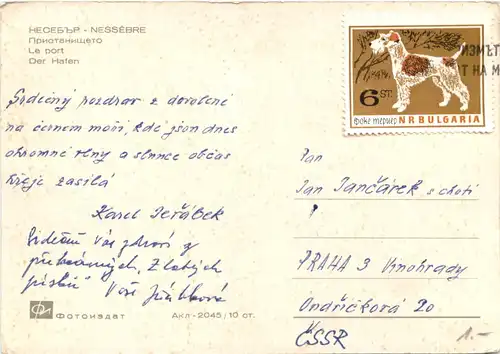 НЕСЕБЪР - NESSÈBRE
Пристанището
Le port
Der Hafen
6 ST.
фокс териер NR BULGARIA
ИЗМЪТ
Т НА М
Srdečný pozdrav z dovolené
na černém moři, kde jsou dnes
ohromné vlny a slunce občas
hřeje zasílá
Karel Jeřábek
Srdečně Vás zdraví z
překrásných, Zlatých
písků" Vaše
Pan
Jan Jančárek s chotí
PRAHA 3 Vinohrady
Ondříčkova 20
ČSSR
1.-
Фотоиздат Акл-2045/10 от.